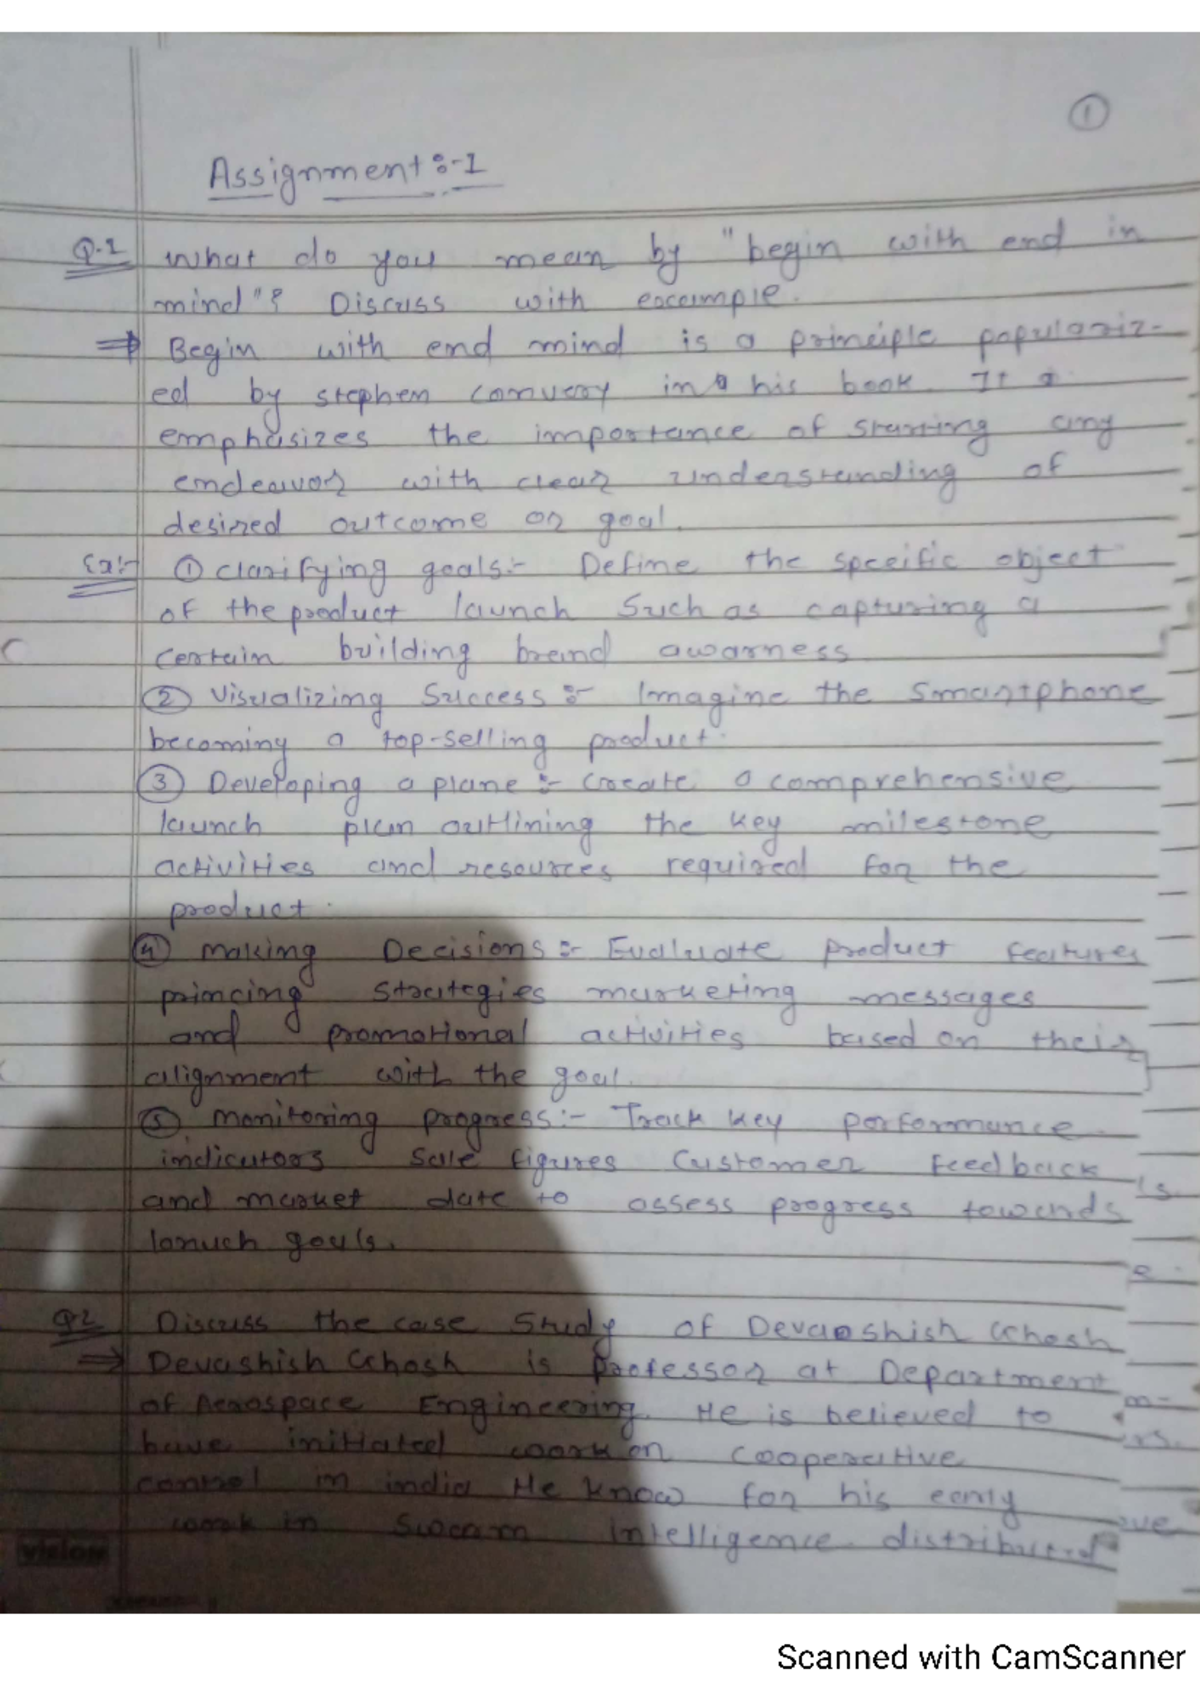 1
Assignment:-1
Q.1 What do you mean by "begin with end in
mind"? Discuss with example.
⇒ Begin with end mind is a principle populariz-
ed by stephen convery in his book It
emphasizes the importance of starting any
endeavor with clear understanding of
desired outcome or goal.
Ex:- ① clarifying goals:- Define the specific object
of the product launch Such as capturing a
certain building brand awarness
② Visualizing Success:- Imagine the Smartphone
becoming a top-selling product.
③ Developing a plane:- Create a comprehensive
launch plan outlining the key milestone
activities and resources required for the
product.
④ making Decisions:- Evaluate product features
princing strategies marketing messages
and promotional activities based on their
alignment with the goal.
⑤ monitoring progress:- Track key performance
indicators sale figures customer feedback
and market date to assess progress towards
lanuch goals.
Q2 Discuss the case Study of Devaoshish Ghosh
⇒ Devashish Ghosh is professor at Department
of Aerospace Engineering. He is believed to
have initiated work on cooperative
control in india He know for his early
work in Swarm intelligence distributed
vision
Scanned with CamScanner